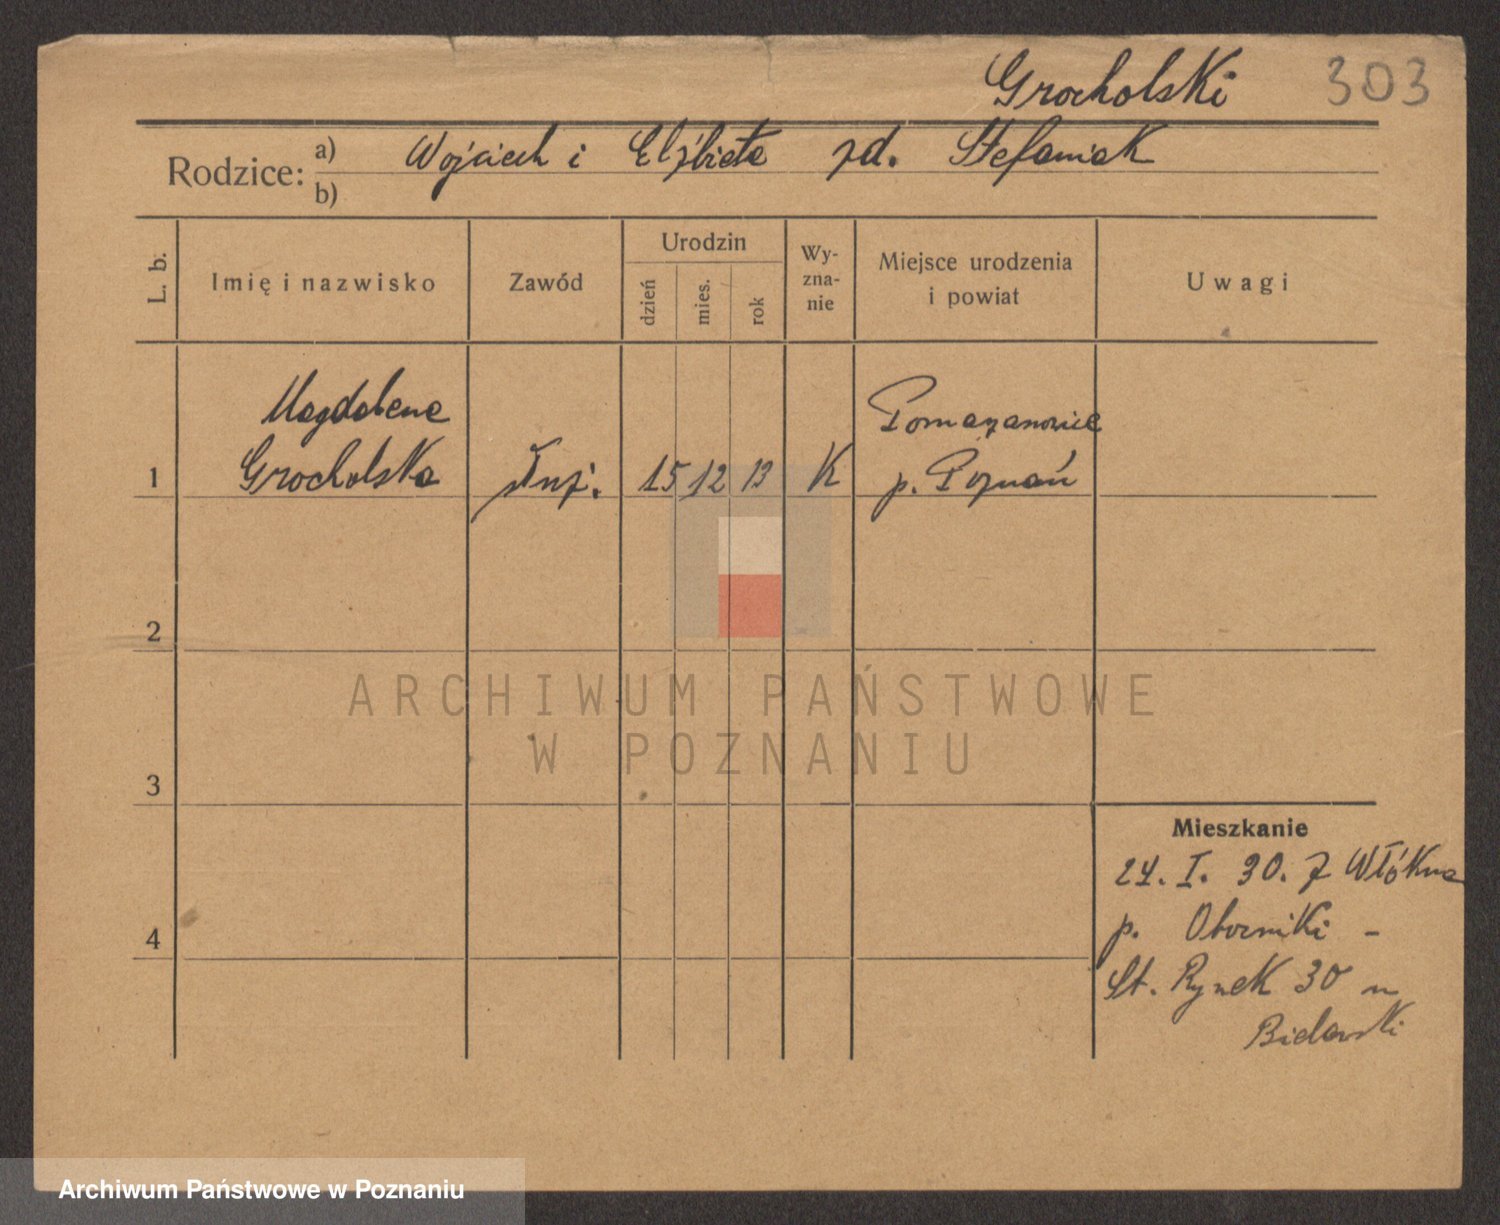 Grocholski 303
Rodzice: a) Wojciech i Elżbieta zd. Stefaniak
b)
L. b. Imię i nazwisko Zawód Urodzin dzień mies. rok Wy-zna-nie Miejsce urodzenia i powiat Uwagi
Magdalena Pomarzanowice
1 Grocholska służ. 15 12 13 K p. Poznań
2
ARCHIWUM PAŃSTWOWE
W POZNANIU
3
Mieszkanie
24. I. 30. z Włókna
p. Oborniki -
4
St. Rynek 30 m
Archiwum Państwowe w Poznaniu